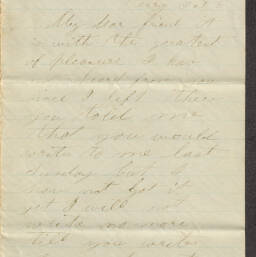 My dear friend it
is with the greatest
of pleasure I now
heard from you
since I left there
you told me
that you would
write to me last
Sunday but I
have not got it
yet I will not
write no more
till you write